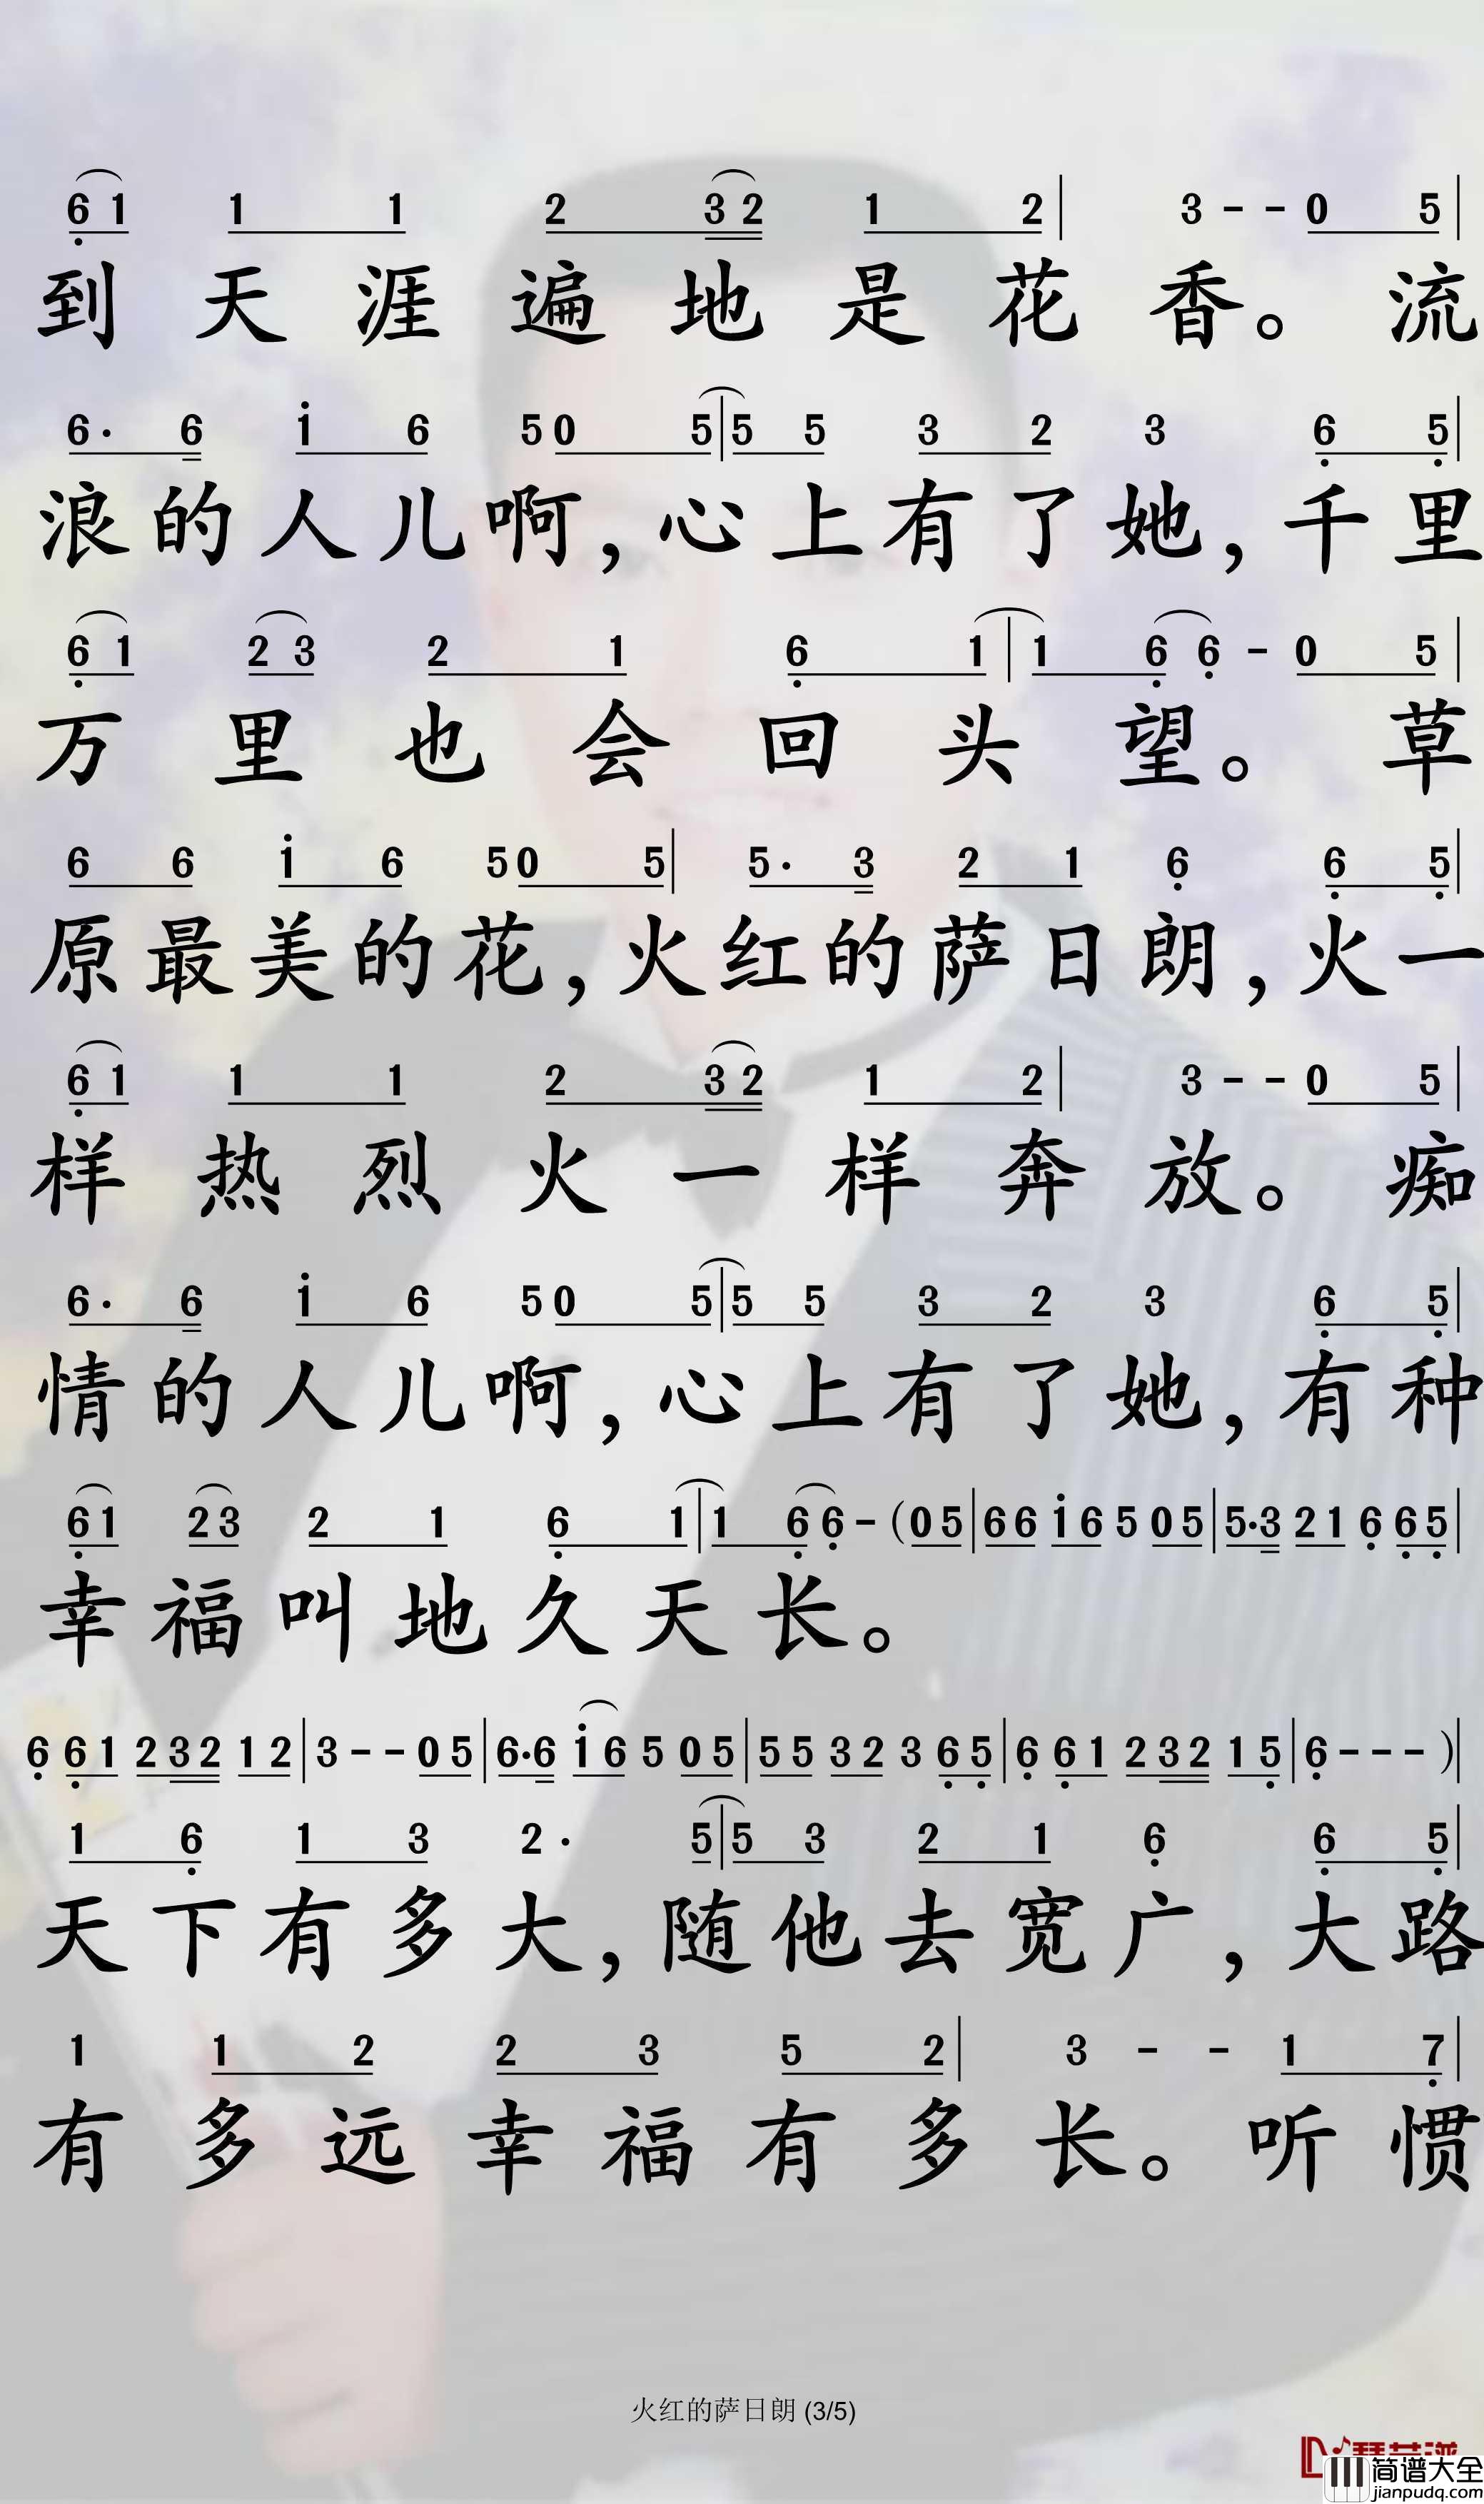 6 1 1 1 2 3 2 1 2 | 3 - - 0 5 |
到天涯遍地是花香。流
6· 6 i 6 5 0 5 | 5 5 3 2 3 6 5 |
浪的人儿啊,心上有了她,千里
6 1 2 3 2 1 6 1 | 1 6 6 - 0 5 |
万里也会回头望。草
6 6 i 6 5 0 5 | 5· 3 2 1 6 6 5 |
原最美的花,火红的萨日朗,火一
6 1 1 1 2 3 2 1 2 | 3 - - 0 5 |
样热烈火一样奔放。痴
6· 6 i 6 5 0 5 | 5 5 3 2 3 6 5 |
情的人儿啊,心上有了她,有种
6 1 2 3 2 1 6 1 | 1 6 6 - ( 0 5 | 6 6 i 6 5 0 5 | 5· 3 2 1 6 6 5 |
幸福叫地久天长。
6 6 1 2 3 2 1 2 | 3 - - 0 5 | 6· 6 i 6 5 0 5 | 5 5 3 2 3 6 5 | 6 6 1 2 3 2 1 5 | 6 - - - ) |
1 6 1 3 2· 5 | 5 3 2 1 6 6 5 |
天下有多大,随他去宽广,大路
1 1 2 2 3 5 2 | 3 - - 1 7 |
有多远幸福有多长。听惯
火红的萨日朗 (3/5)
简谱大全
jianpudq.com